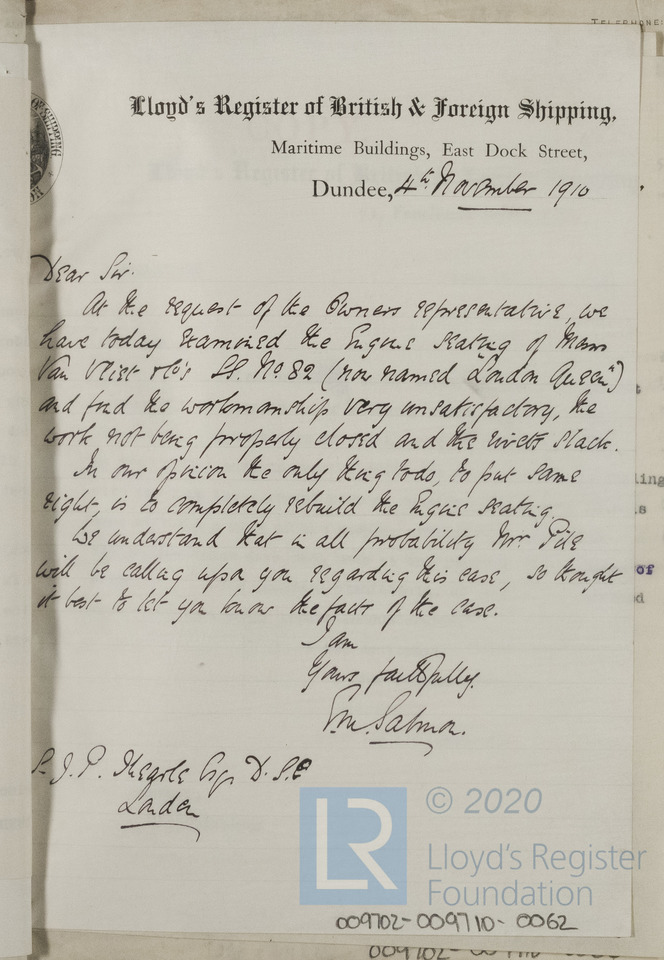 TELEPHONE
Lloyd's Register of British & Foreign Shipping,
Maritime Buildings, East Dock Street,
Dundee, 4th November 1910
Dear Sir.
At the request of the Owners representative, we
have today examined the Engine seating of Messrs
Van Vliet & Co's SS. No. 82 (now named "London Queen")
and find the workmanship very unsatisfactory, the
work not being properly closed and the rivets slack.
In our opinion the only thing to do, to put same
right, is to completely rebuild the Engine seating.
We understand that in all probability Mr. Pile
will be calling upon you regarding this case, so thought
it best to let you know the facts of the case.
I am
Yours faithfully.
Salmon.
S. J. P. Thearle Esq. D.Sc
London
LR
© 2020
Lloyd's Register
Foundation
009702-009710-0062
ling
s
of
d